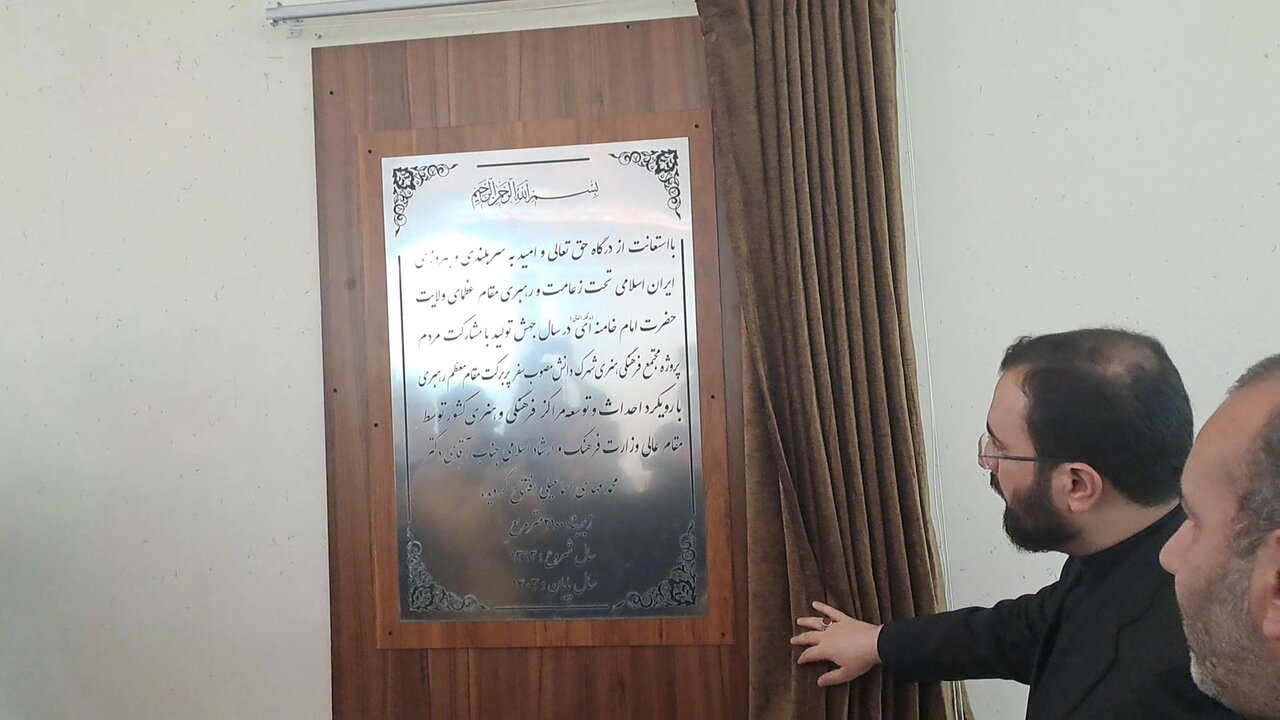 بسم الله الرحمن الرحیم
با استعانت از درگاه حق تعالی و امید به سربلندی و بهروزی
ایران اسلامی تحت زعامت و رهبری مقام عظمای ولایت
حضرت امام خامنه ای در سال جهش تولید با مشارکت مردم
پروژه مجتمع فرهنگی هنری شهرک دانش مصوب سفر پربرکت مقام معظم رهبری
با رویکرد احداث و توسعه مراکز فرهنگی و هنری کشور توسط
مقام عالی وزارت فرهنگ و ارشاد اسلامی جناب آقای دکتر
محمد مهدی اسماعیلی افتتاح گردید.
زیربنا: ۲۱۰۰ مترمربع
سال شروع : ۱۳۹۳
سال پایان : ۱۴۰۳